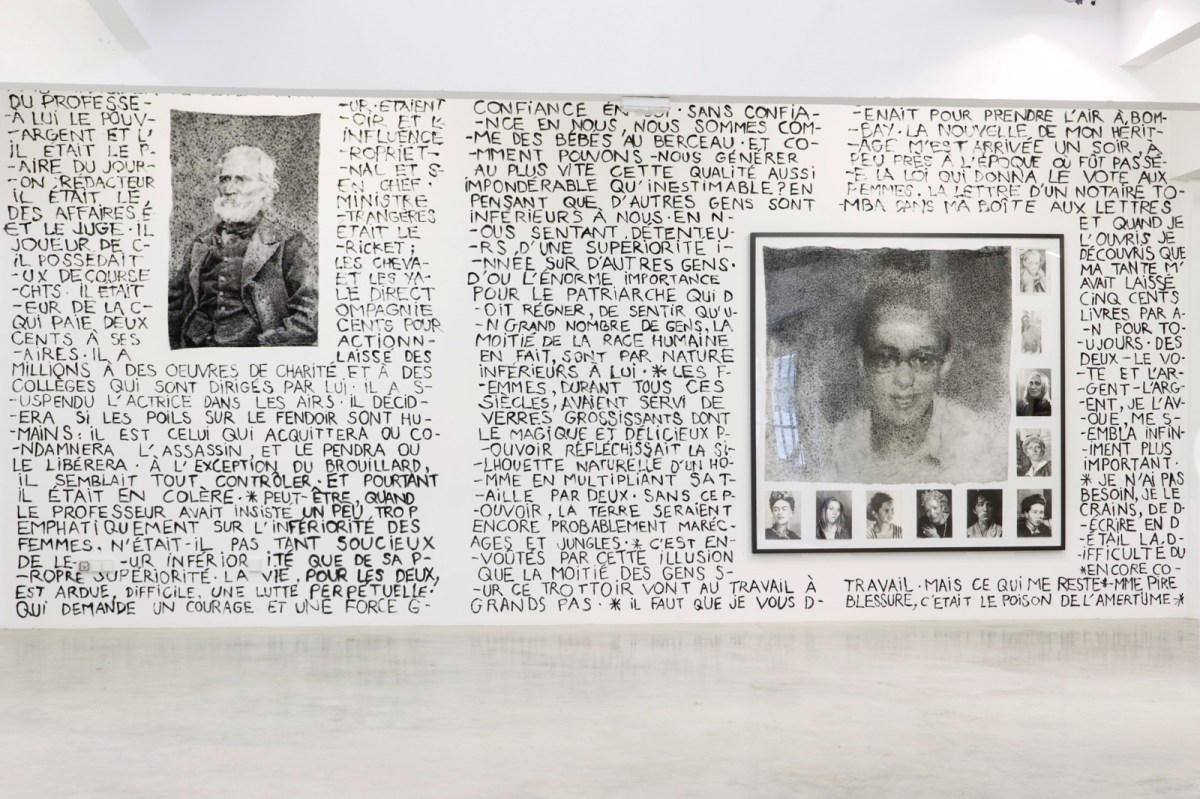 DU PROFESSE- -UR·ETAIENT
-À LUI LE POUV- -OIR ET L'
-ARGENT ET L' INFLUENCE
IL ETAIT LE P- -ROPRIET-
-AIRE DU JOUR- -NAL ET S-
-ON RÉDACTEUR EN CHEF·
IL ÉTAIT LE MINISTRE
DES AFFAIRES É -TRANGÈRES
ET LE JUGE·IL ÉTAIT LE
JOUEUR DE C- -RICKET;
IL POSSÉDAIT LES CHEVA-
-UX DE COURSE ET LES YA-
-CHTS· IL ETAIT LE DIRECT
-EUR DE LA C- OMPAGNIE
QUI PAIE DEUX CENTS POUR
CENTS À SES ACTIONN-
-AIRES·IL A LAISSÉ DES
MILLIONS À DES OEUVRES DE CHARITÉ ET À DES
COLLÈGES QUI SONT DIRIGÉS PAR LUI·IL A S-
-USPENDU L'ACTRICE DANS LES AIRS·IL DÉCID-
-ERA SI LES POILS SUR LE FENDOIR SONT HU-
-MAINS: IL EST CELUI QUI ACQUITTERA OU CO-
-NDAMNERA L'ASSASSIN, ET LE PENDRA OU
LE LIBÉRERA· À L'EXCEPTION DU BROUILLARD,
IL SEMBLAIT TOUT CONTRÔLER·ET POURTANT
IL ÉTAIT EN COLÈRE·* PEUT-ÊTRE, QUAND
LE PROFESSEUR AVAIT INSISTÉ UN PEU TROP
EMPHATIQUEMENT SUR L'INFÉRIORITÉ DES
FEMMES, N'ÉTAIT-IL PAS TANT SOUCIEUX
DE LE -UR INFÉRIOR ITÉ QUE DE SA P-
-ROPRE SUPÉRIORITÉ·LA VIE, POUR LES DEUX,
EST ARDUE, DIFFICILE, UNE LUTTE PERPÉTUELLE·
QUI DEMANDE UN COURAGE ET UNE FORCE G-
CONFIANCE EN SOI·SANS CONFIA-
-NCE EN NOUS, NOUS SOMMES COM-
-ME DES BÉBÉS AU BERCEAU·ET CO-
-MMENT POUVONS-NOUS GÉNÉRER
AU PLUS VITE CETTE QUALITÉ AUSSI
IMPONDÉRABLE QU'INESTIMABLE? EN
PENSANT QUE D'AUTRES GENS SONT
INFÉRIEURS À NOUS·EN N-
-OUS SENTANT DÉTENTEU-
-RS D'UNE SUPÉRIORITÉ I-
-NNÉE SUR D'AUTRES GENS·
D'OÙ L'ÉNORME IMPORTANCE
POUR LE PATRIARCHE QUI D
-OIT RÉGNER, DE SENTIR QU'U-
-N GRAND NOMBRE DE GENS, LA
MOITIÉ DE LA RACE HUMAINE
EN FAIT, SONT PAR NATURE
INFÉRIEURS À LUI·* LES F-
-EMMES, DURANT TOUS CES
SIÈCLES, AVAIENT SERVI DE
VERRES GROSSISSANTS DONT
LE MAGIQUE ET DÉLICIEUX P-
-OUVOIR RÉFLÉCHISSAIT LA SI-
-LHOUETTE NATURELLE D'UN HO-
-MME EN MULTIPLIANT SA T-
-AILLE PAR DEUX·SANS CE P-
-OUVOIR, LA TERRE SERAIENT
ENCORE PROBABLEMENT MARÉC-
AGES ET JUNGLES·* C'EST EN-
-VOÛTÉS PAR CETTE ILLUSION
QUE LA MOITIÉ DES GENS S-
-UR CE TROTTOIR VONT AU TRAVAIL À
GRANDS PAS·* IL FAUT QUE JE VOUS D-
-ENAIT POUR PRENDRE L'AIR À BOM-
-BAY·LA NOUVELLE DE MON HÉRIT-
-AGE M'EST ARRIVÉE UN SOIR, À
PEU PRÈS À L'ÉPOQUE OÙ FÛT PASSÉ-
-E LA LOI QUI DONNA LE VOTE AUX
FEMMES. LA LETTRE D'UN NOTAIRE TO-
-MBA DANS MA BOÎTE AUX LETTRES
ET QUAND JE
L'OUVRIS JE
DÉCOUVRIS QUE
MA TANTE M'
AVAIT LAISSÉ
CINQ CENTS
LIVRES PAR A-
-N POUR TO-
-UJOURS·DES
DEUX-LE VO-
-TE ET L'AR-
-GENT-L'ARG-
-ENT, JE L'AV-
-OUE, ME S-
-EMBLA INFIN-
-IMENT PLUS
IMPORTANT·
* JE N'AI PAS
BESOIN, JE LE
CRAINS, DE D-
-ÉCRIRE EN D
-ÉTAIL LA D-
-IFFICULTÉ DU
*ENCORE CO-
TRAVAIL·MAIS CE QUI ME RESTE*-MME PIRE
BLESSURE, C'ÉTAIT LE POISON DE L'AMERTUME·*